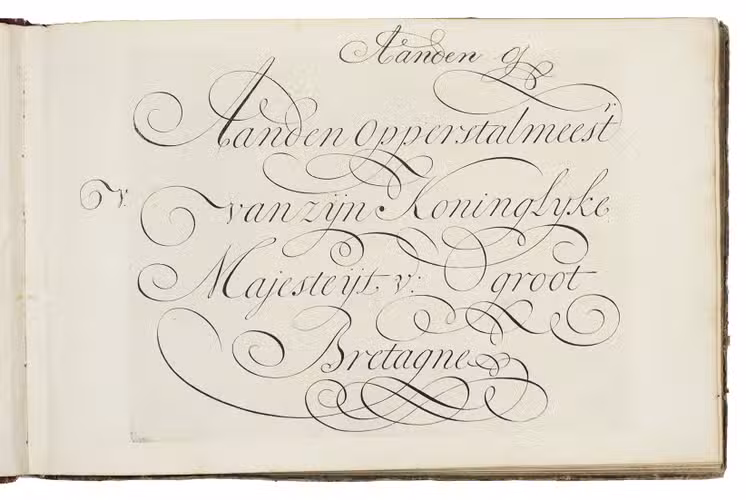 Aanden O
Aanden Opperstalmeest.r
v. van zijn Koninglyke
Majesteijt. v: groot
Bretagne